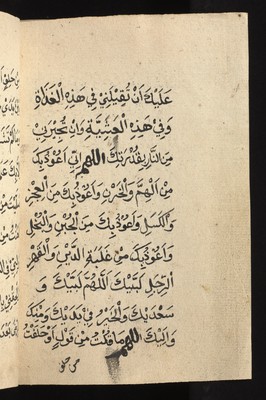 عَلَيْكَ اَنْ تُقِيلَنِي فِي هَذِهِ الْغَدَاةِ
وَفِي هَذِهِ الْعَشِيَّةِ وَاَنْ تُجِيرَنِي
مِنَ النَّارِ بِقُدْرَتِكَ اللهم اِنِّي اَعُوذُ بِكَ
مِنَ الْهَمِّ وَالْحَزَنِ وَاَعُوذُ بِكَ مِنَ الْعَجْزِ
وَالْكَسَلِ وَاَعُوذُ بِكَ مِنَ الْجُبْنِ وَالْبُخْلِ
وَاَعُوذُ بِكَ مِنْ غَلَبَةِ الدَّيْنِ وَالْقَهْرِ
الرَّجِلِ لَبَّيْكَ اَللَّهُمَّ لَبَّيْكَ وَ
سَعْدَيْكَ وَالْخَيْرُ فِي يَدَيْكَ وَمِنْكَ
وَاِلَيْكَ اللهم مَا قُلْتُ مِنْ قَوْلٍ اَوْ حَلَفْتُ